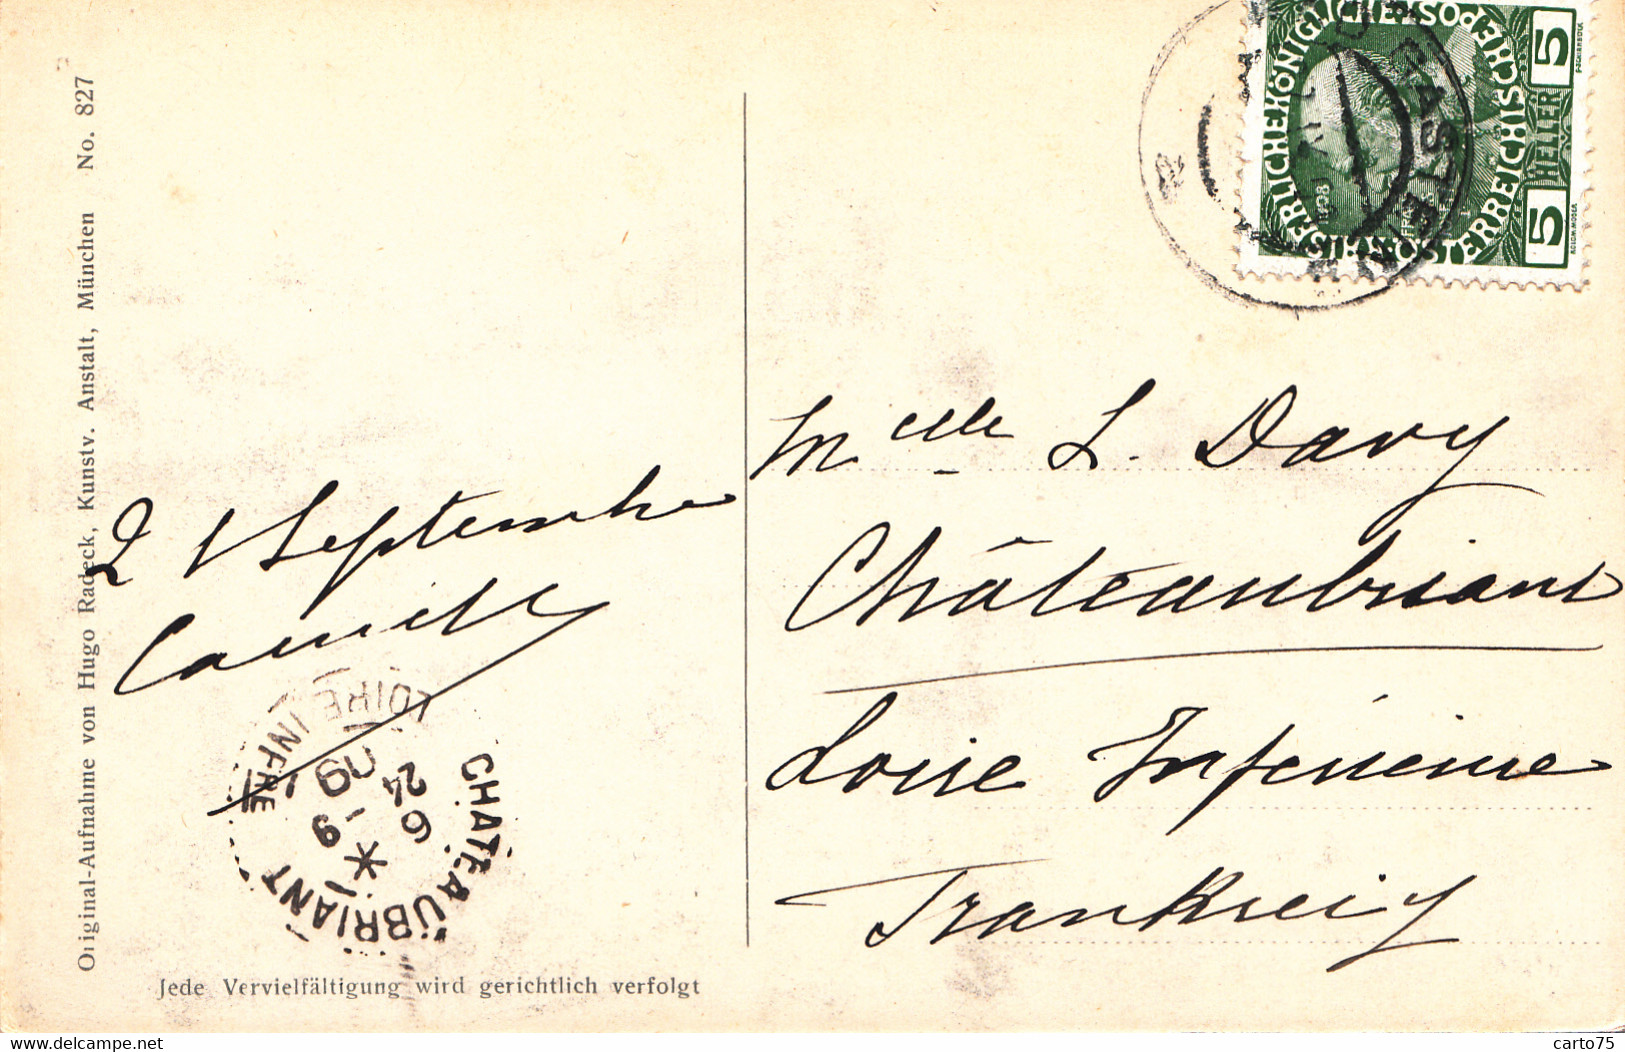 Original-Aufnahme von Hugo Radeck, Kunstv. Anstalt, München No. 827
KAISERLICHEKÖNIGLICHE ÖSTERREICHISCHE POST
5 HELLER 5
1908
2 1 Septembre
Camille
CHATEAUBRIANT
LOIRE INFRE
24
9
09
Mlle L. Davy
Châteaubriant
Loire Inférieure
Frankreich
Jede Vervielfältigung wird gerichtlich verfolgt
www.delcampe.net
carto75